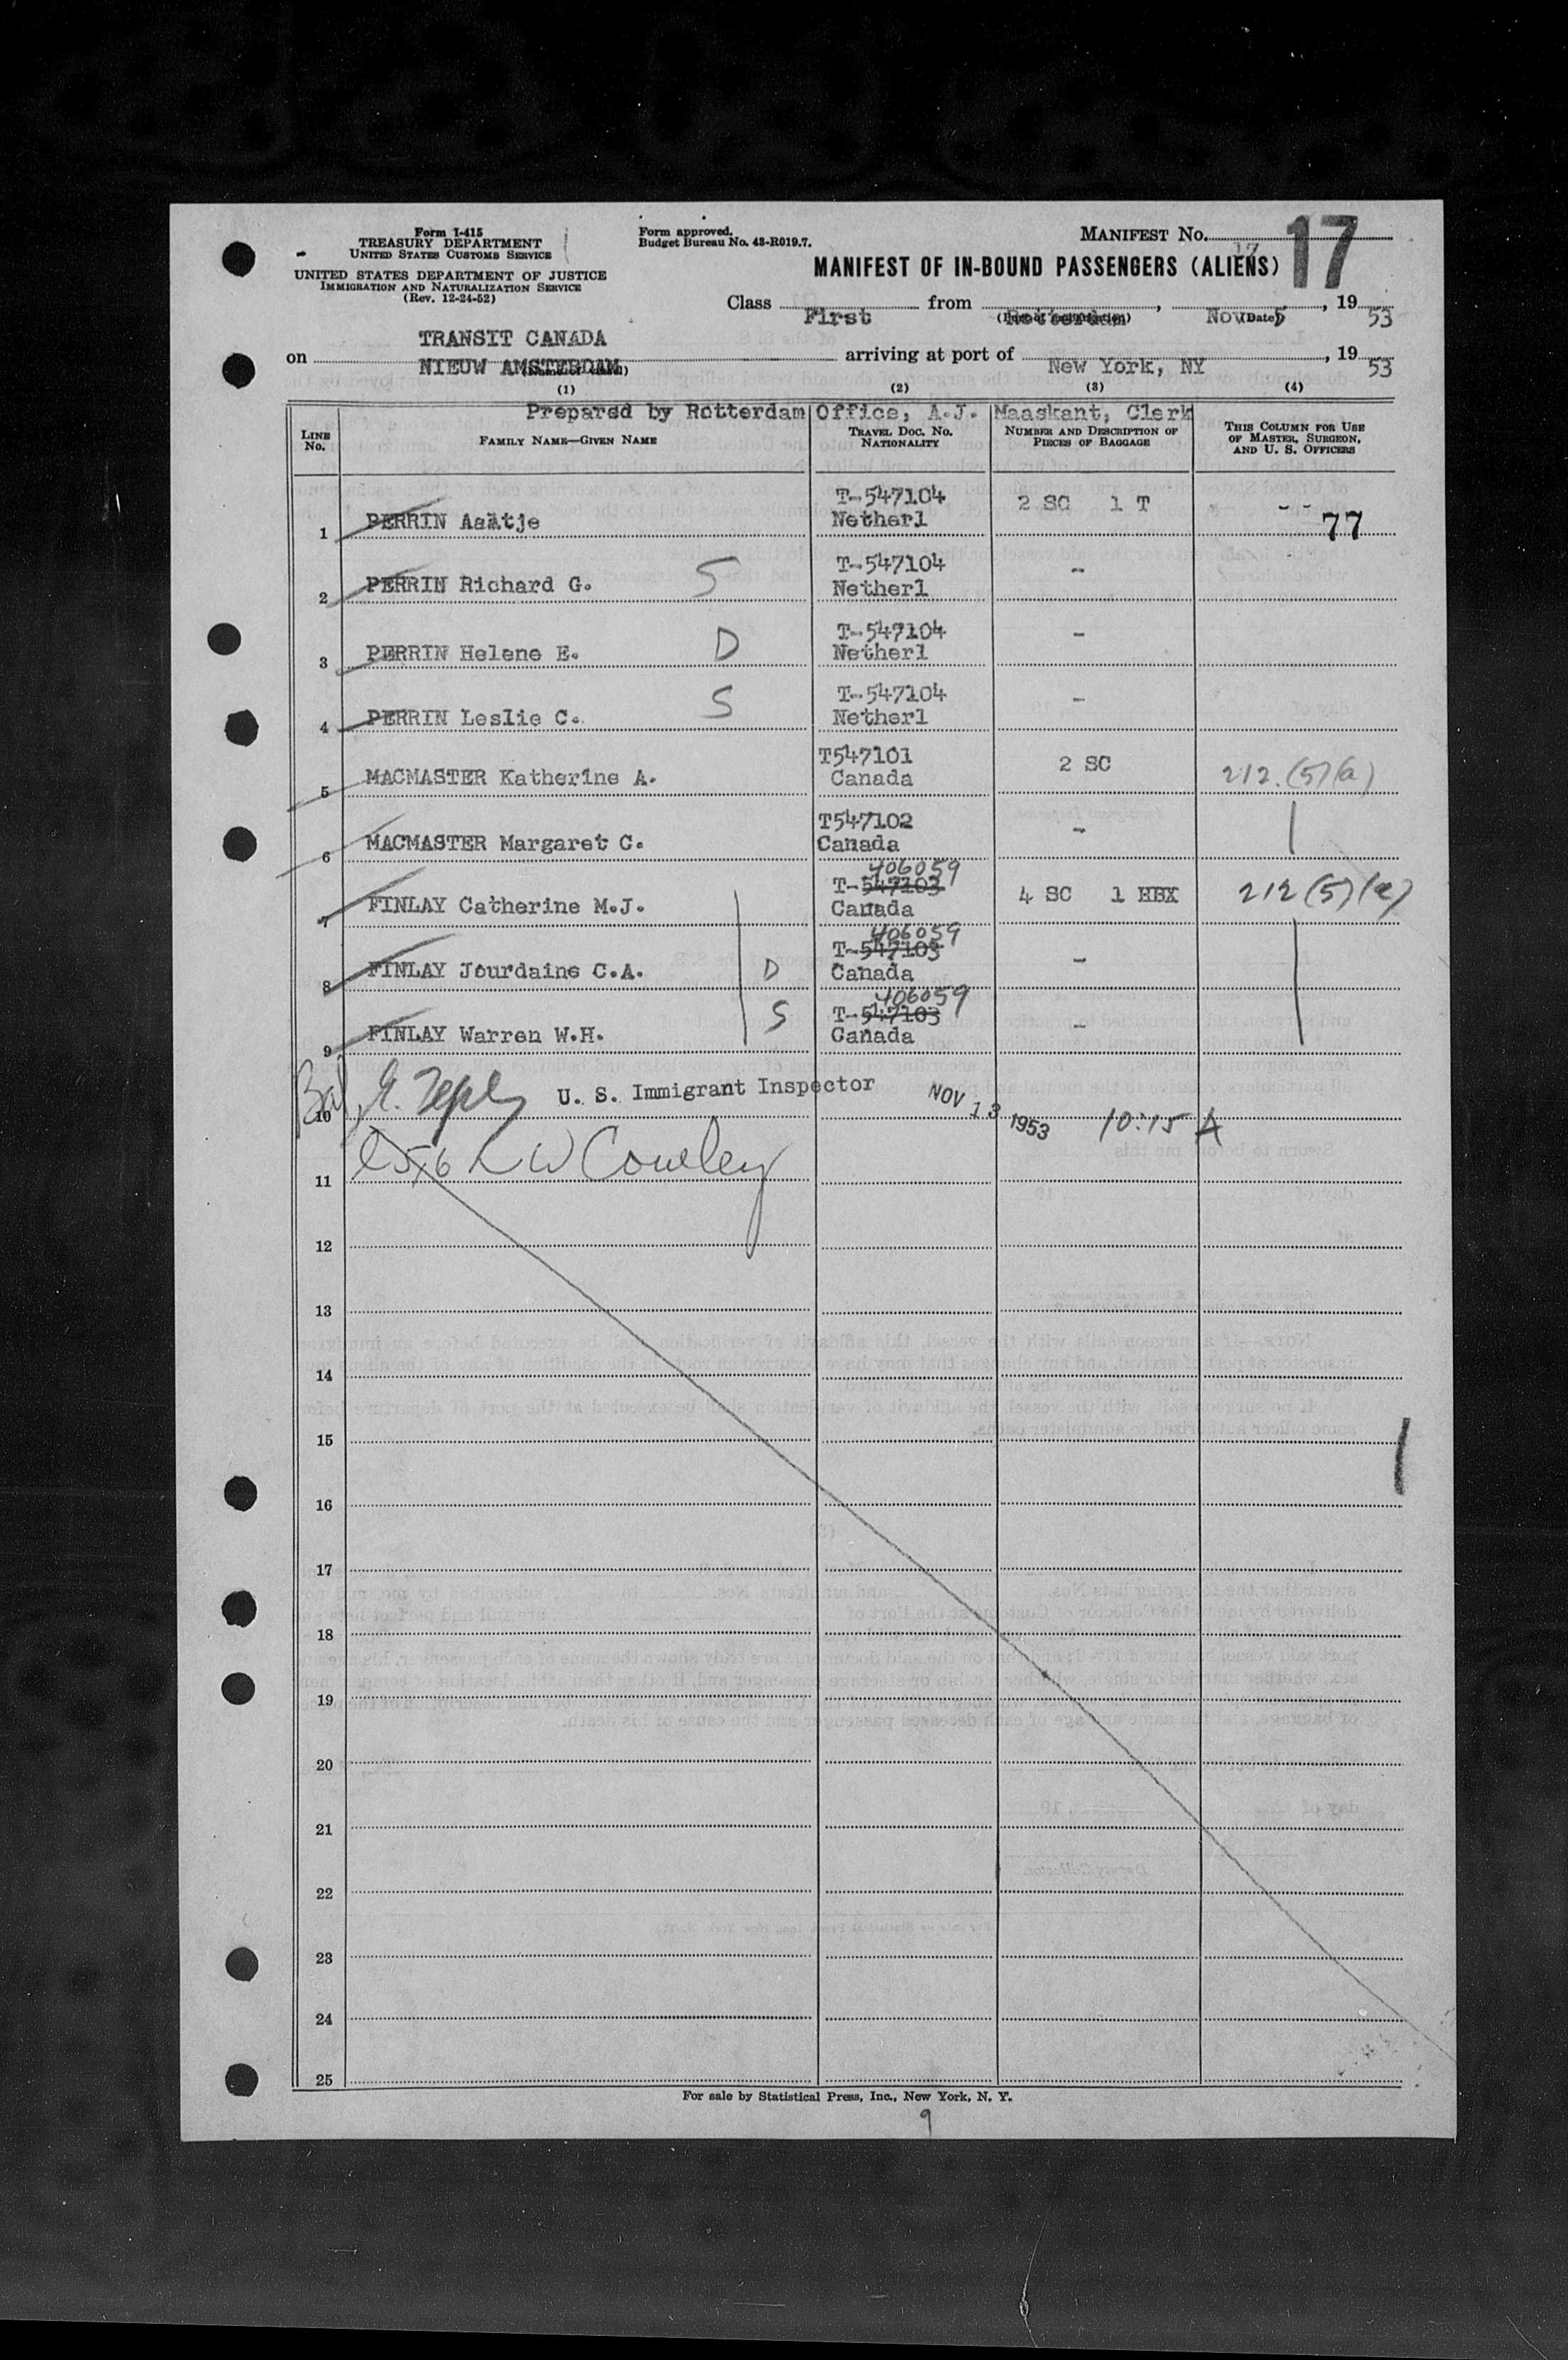 Form I-415
TREASURY DEPARTMENT
UNITED STATES CUSTOMS SERVICE
UNITED STATES DEPARTMENT OF JUSTICE
IMMIGRATION AND NATURALIZATION SERVICE
(Rev. 12-24-52)
Form approved.
Budget Bureau No. 43-R019.7.
MANIFEST No. 17
17
MANIFEST OF IN-BOUND PASSENGERS (ALIENS)
Class First from Rotterdam, Nov 5, 1953
(Date)
TRANSIT CANADA
on NIEUW AMSTERDAM arriving at port of New York, NY, 1953
(1) (2) (3) (4)
Prepared by Rotterdam Office, A.J. Maaskant, Clerk
LINE No. FAMILY NAME—GIVEN NAME TRAVEL DOC. NO. NATIONALITY NUMBER AND DESCRIPTION OF PIECES OF BAGGAGE THIS COLUMN FOR USE OF MASTER, SURGEON, AND U. S. OFFICERS
1 PERRIN Aaltje T-547104 Netherl 2 SC 1 T -- 77
2 PERRIN Richard G. S T-547104 Netherl -
3 PERRIN Helene E. D T-547104 Netherl -
4 PERRIN Leslie C. S T-547104 Netherl -
5 MACMASTER Katherine A. T547101 Canada 2 SC 212.(5)(a)
6 MACMASTER Margaret C. T547102 Canada -
7 FINLAY Catherine M.J. T-547103 406059 Canada 4 SC 1 HBX 212(5)(a)
8 FINLAY Jourdaine C.A. D T-547103 406059 Canada -
9 FINLAY Warren W.H. S T-547103 406059 Canada -
10 U. S. Immigrant Inspector NOV 13 1953 10:15 A
11 5,6 L W Cowley
12
13
14
15
16
17
18
19
20
21
22
23
24
25
For sale by Statistical Press, Inc., New York, N. Y.
9